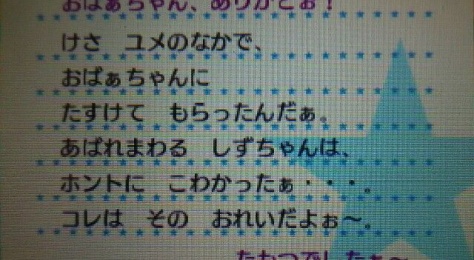 おばぁちゃん、ありがとぉ！
けさ　ユメのなかで、
おばぁちゃんに
たすけて　もらったんだぁ。
あばれまわる　しずちゃんは、
ホントに　こわかったぁ・・・。
コレは　その　おれいだよぉ～。